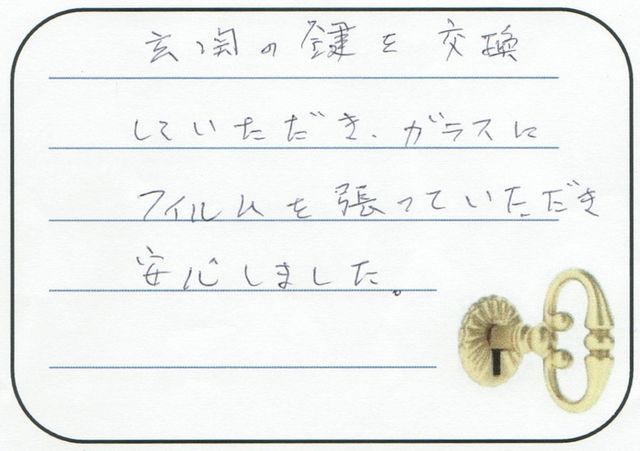 玄関の鍵を交換
していただき、ガラスに
フィルムを張っていただき
安心しました。